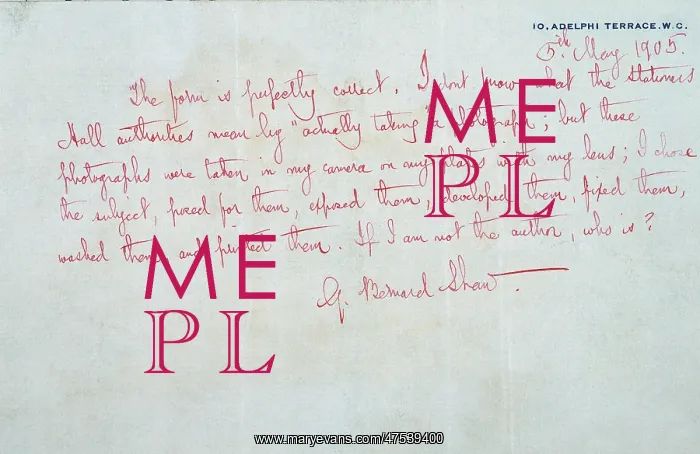 10, ADELPHI TERRACE. W.C.
5th May 1905.
The form is perfectly correct. I dont know what the Stationers
Hall authorities mean by "actually taking" a photograph; but these
photographs were taken in my camera on my plates with my lens; I chose
the subject, posed for them, exposed them, developed them, fixed them,
washed them and printed them. If I am not the author, who is?
G. Bernard Shaw.
ME
PL
ME
PL
www.maryevans.com/47539400